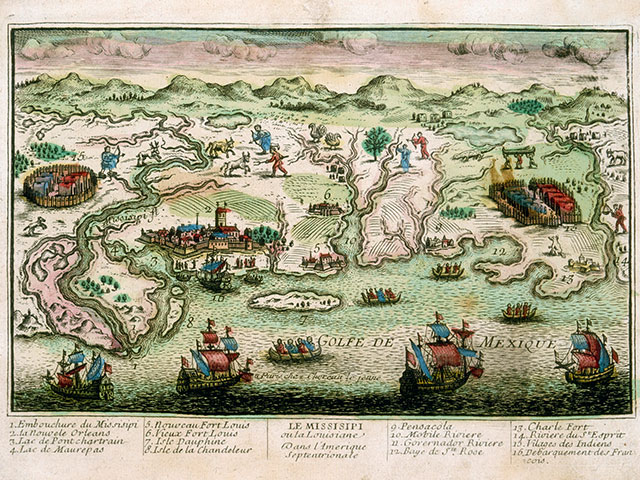 Missisipi
GOLFE DE MEXIQUE
a Paris chez Crepy
1. Embouchure du Missisipi
2. la Nouvele Orleans
3. Lac de Pont chartrain
4. Lac de Maurepas
5. Nouveau Fort Louis
6. Vieux Fort Louis
7. Isle Dauphine
8. Isle de la Chandeleur
LE MISSISIPI
ou la Louisiane
Dans l'Amerique
Septentrionale
9. Pensacola
10. Mobile Riviere
11. Governador Riviere
12. Baye de Ste Rose
13. Charle Fort
14. Riviere du St Esprit
15. Vilages des Indiens
16. Debarquement des Fran
cois.